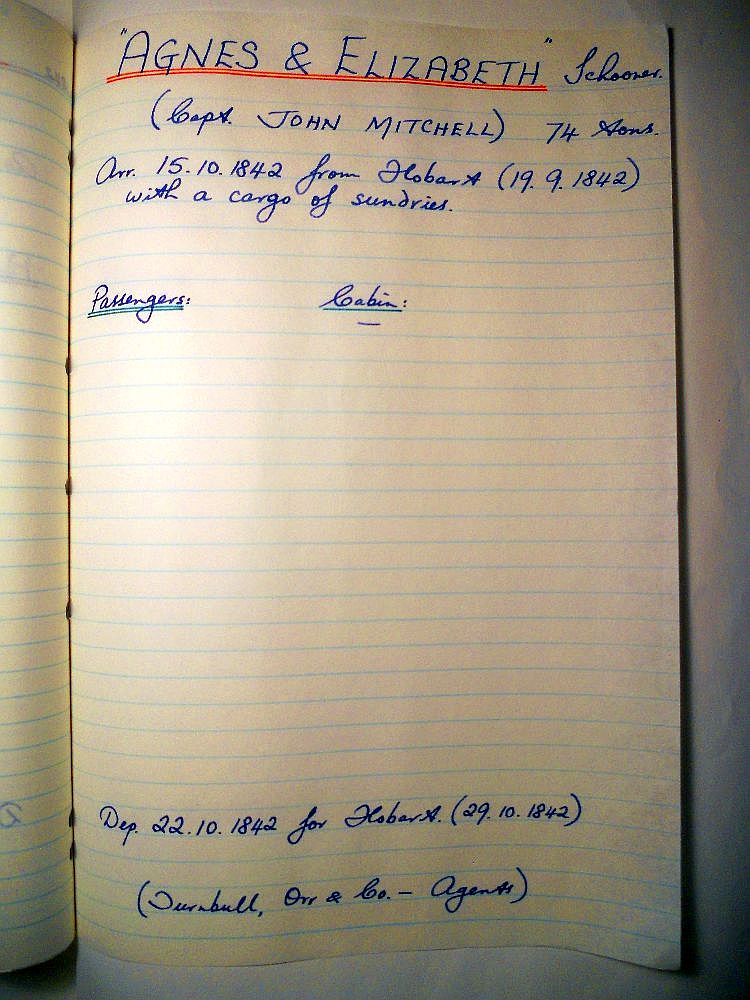 "AGNES & ELIZABETH" Schooner.
(Capt. JOHN MITCHELL) 74 tons.
Arr. 15.10.1842 from Hobart (19.9.1842)
with a cargo of sundries.
Passengers: Cabin:
—
Dep. 22.10.1842 for Hobart. (29.10.1842)
(Turnbull, Orr & Co. – Agents)